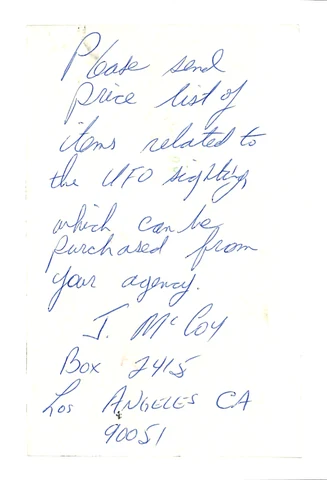 Please send
price list of
items related to
the UFO sighting
which can be
purchased from
your agency.
J. McCoy
Box 2415
Los ANGELES CA
90051